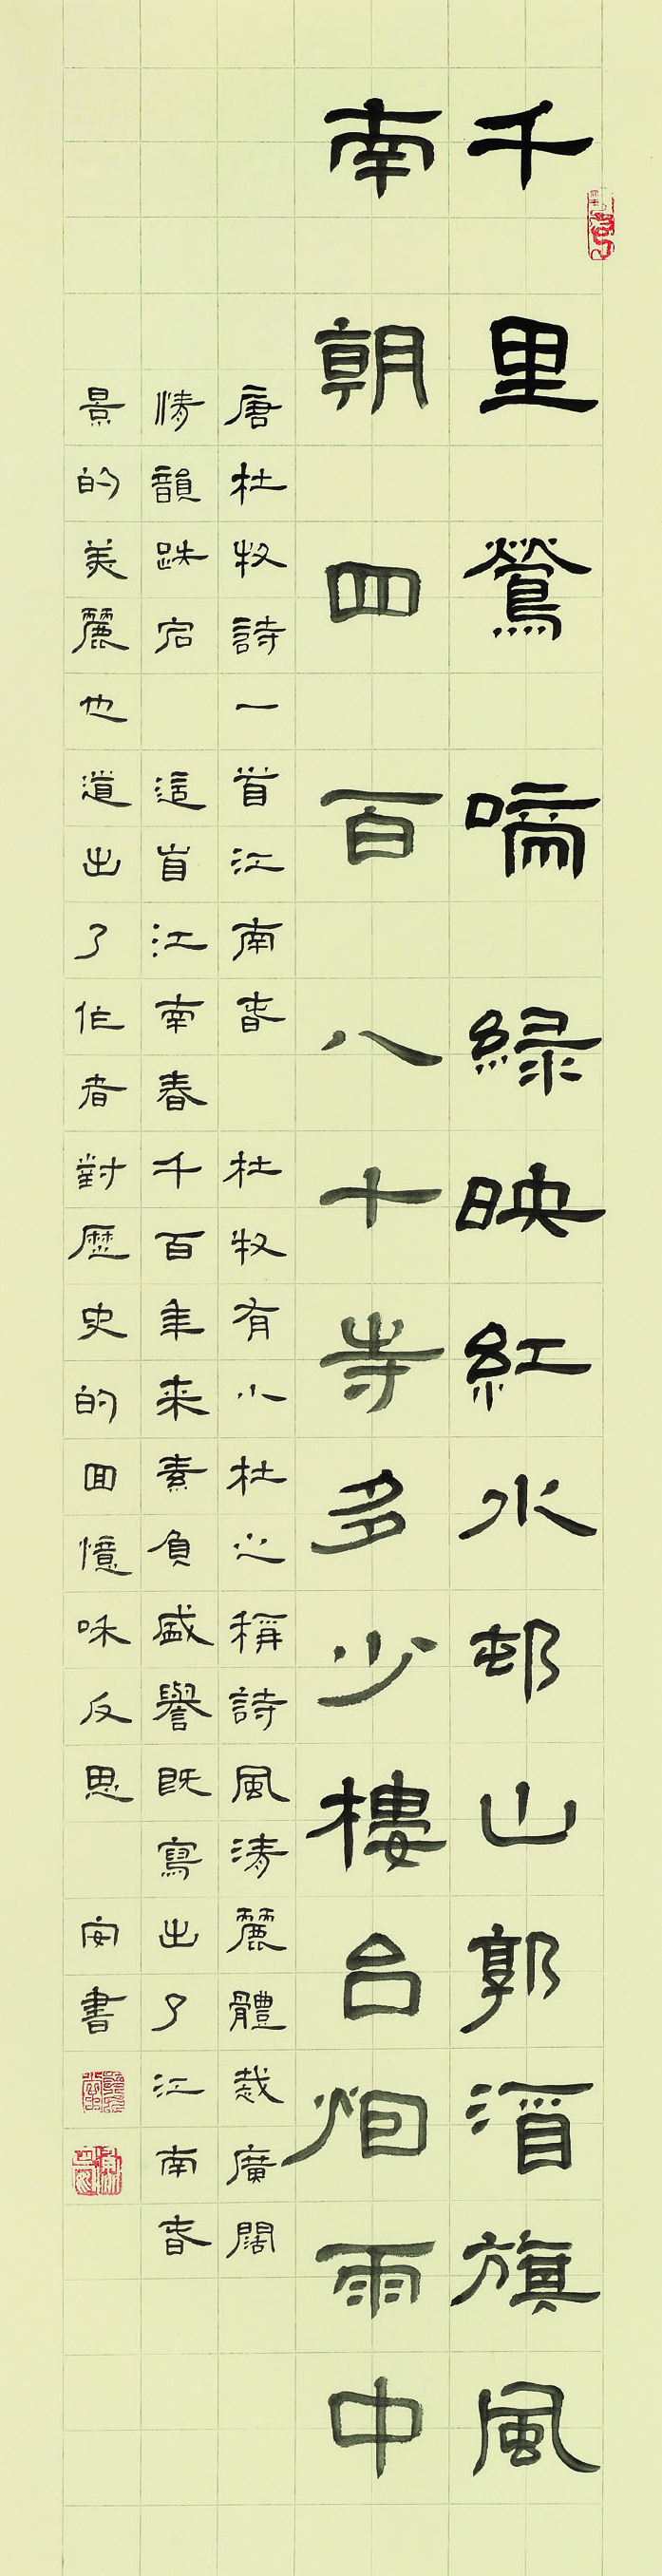 千里鶯啼緑映紅水邨山郭酒旗風
南朝四百八十寺多少樓台烟雨中
唐杜牧詩一首江南春 杜牧有小杜之稱詩風清麗體裁廣闊
情韻跌宕 這首江南春千百年来素負盛譽既寫出了江南春
景的美麗也道出了作者對歷史的回憶和反思 安書